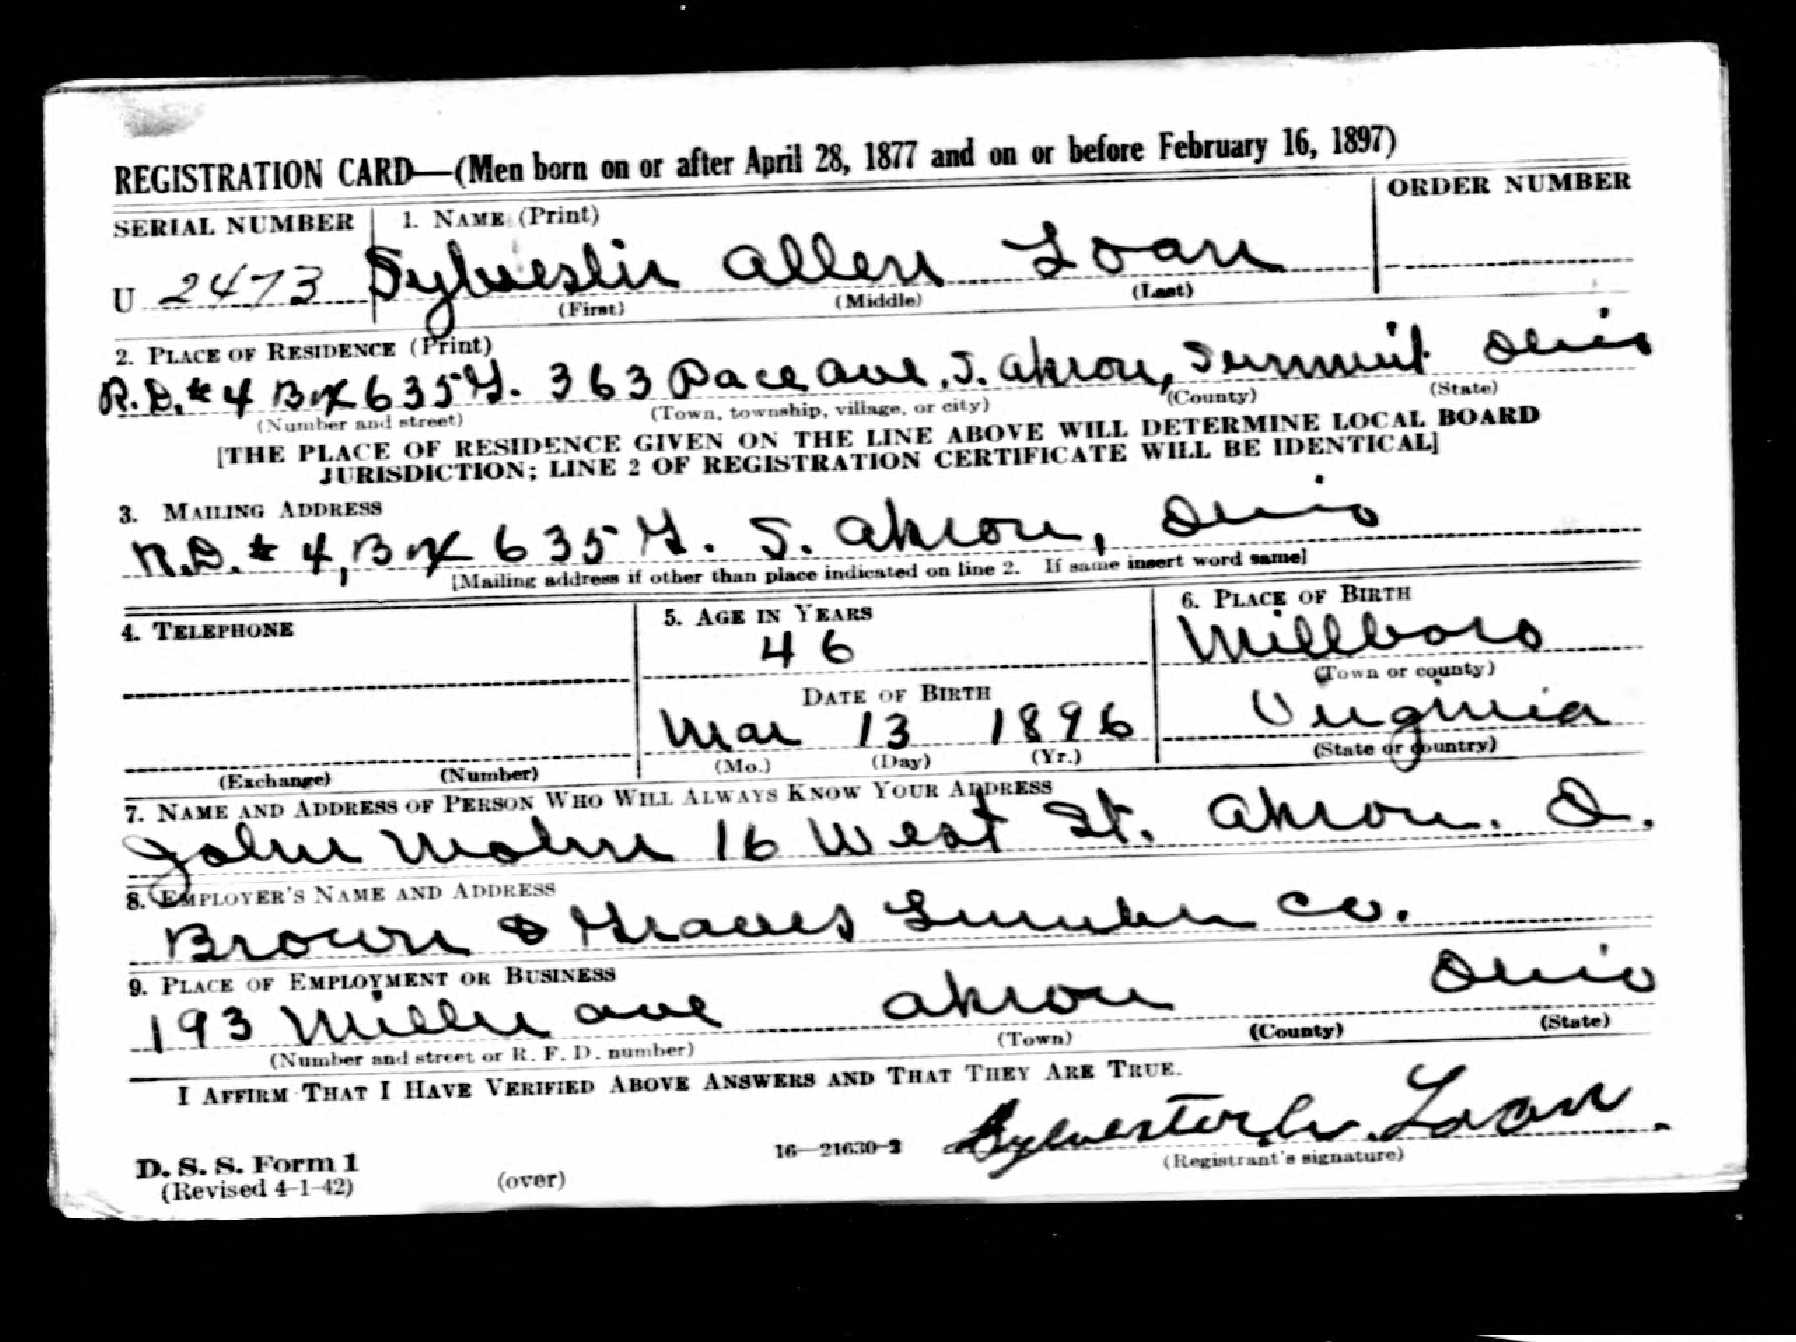 REGISTRATION CARD—(Men born on or after April 28, 1877 and on or before February 16, 1897)
SERIAL NUMBER 1. NAME (Print) ORDER NUMBER
U 2473 Sylvester Allen Loan
(First) (Middle) (Last)
2. PLACE OF RESIDENCE (Print)
R.D. # 4 Box 635 G. 363 Pace Ave, S. Akron, Summit Ohio
(Number and street) (Town, township, village, or city) (County) (State)
[THE PLACE OF RESIDENCE GIVEN ON THE LINE ABOVE WILL DETERMINE LOCAL BOARD
JURISDICTION; LINE 2 OF REGISTRATION CERTIFICATE WILL BE IDENTICAL]
3. MAILING ADDRESS
R.D. # 4, Box 635 G. S. Akron, Ohio
[Mailing address if other than place indicated on line 2. If same insert word same]
4. TELEPHONE 5. AGE IN YEARS 6. PLACE OF BIRTH
46 Millboro
(Town or county)
DATE OF BIRTH Virginia
Mar 13 1896
(Exchange) (Number) (Mo.) (Day) (Yr.) (State or country)
7. NAME AND ADDRESS OF PERSON WHO WILL ALWAYS KNOW YOUR ADDRESS
John Mohn 16 West St. Akron. O.
8. EMPLOYER'S NAME AND ADDRESS
Brown & Graves Lumber Co.
9. PLACE OF EMPLOYMENT OR BUSINESS
193 Miller Ave Akron Ohio
(Number and street or R. F. D. number) (Town) (County) (State)
I AFFIRM THAT I HAVE VERIFIED ABOVE ANSWERS AND THAT THEY ARE TRUE.
Sylvester Loan
D. S. S. Form 1 16—21630-2 (Registrant's signature)
(Revised 4-1-42) (over)